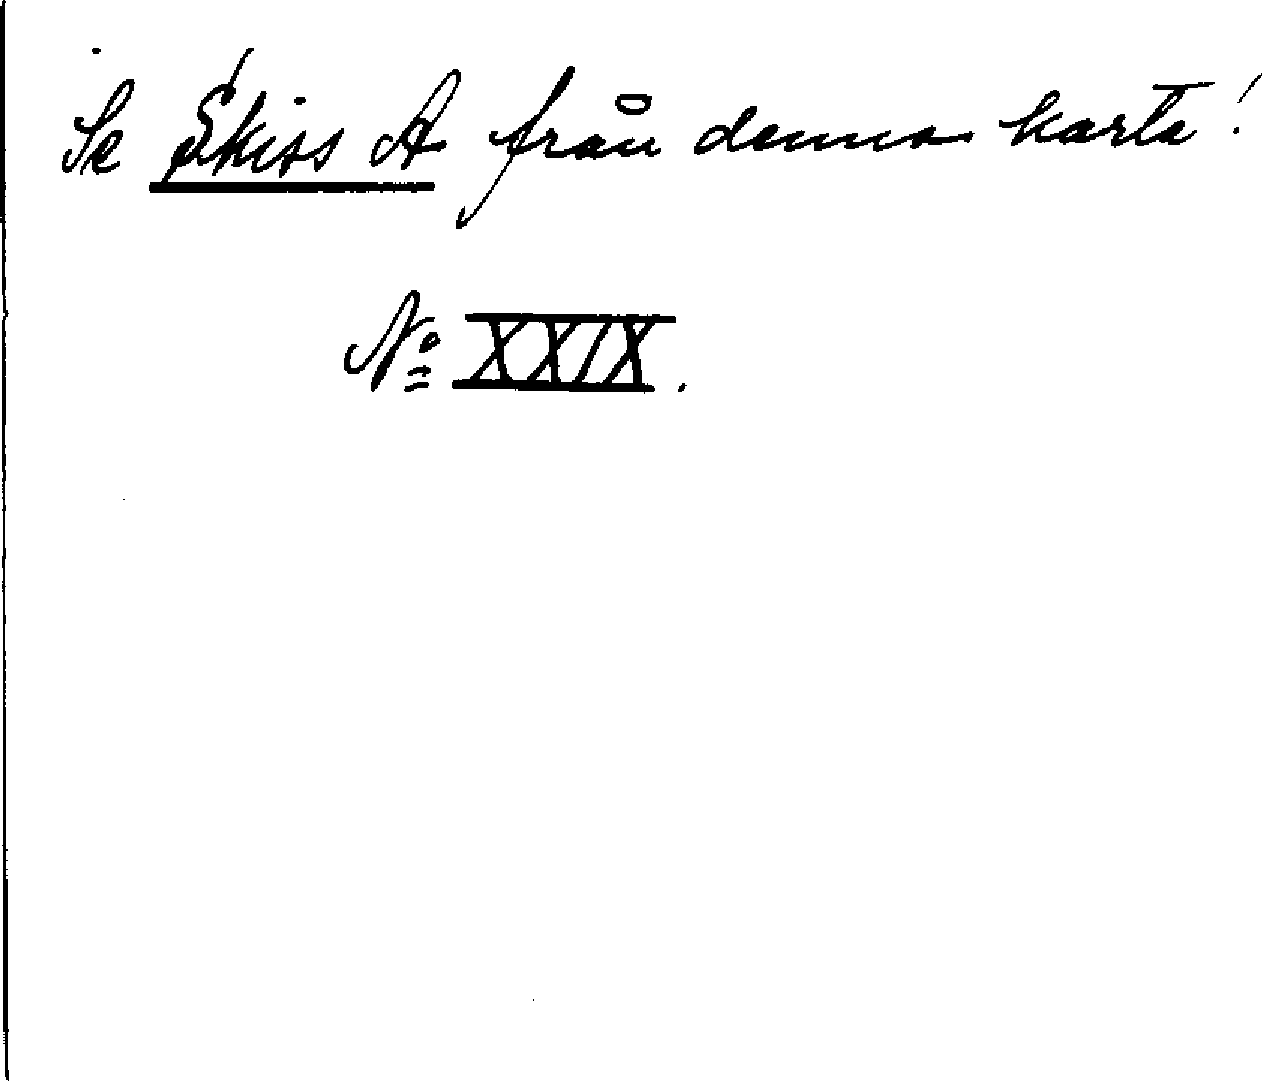 Se Skiss A från denna karta!
No XXIX.